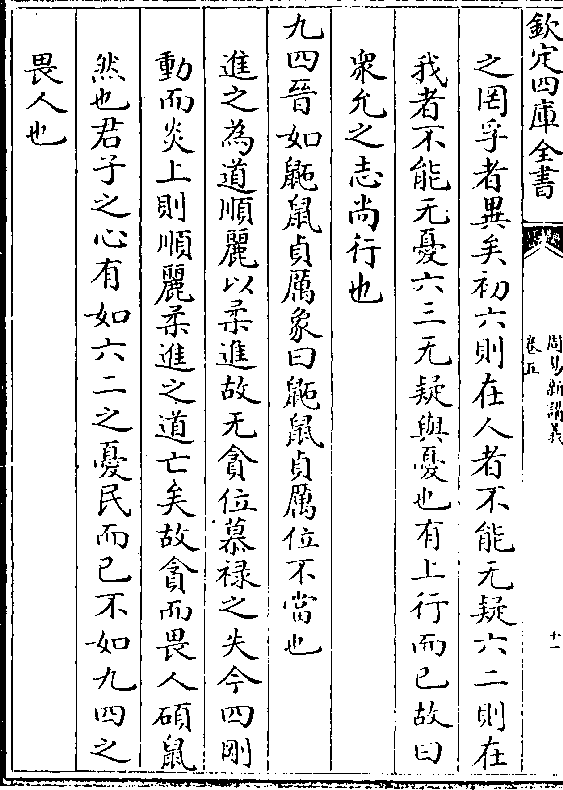 欽定四庫全書
周易新講義
卷五
十一
之罔孚者異矣初六則在人者不能无疑六二則在
我者不能无憂六三无疑與憂也有上行而已故曰
衆允之志尚行也
九四晉如鼫鼠貞厲象曰鼫鼠貞厲位不當也
進之為道順麗以柔進故无貪位慕禄之失今四剛
動而炎上則順麗柔進之道亡矣故貪而畏人碩鼠
然也君子之心有如六二之憂民而已不如九四之
畏人也